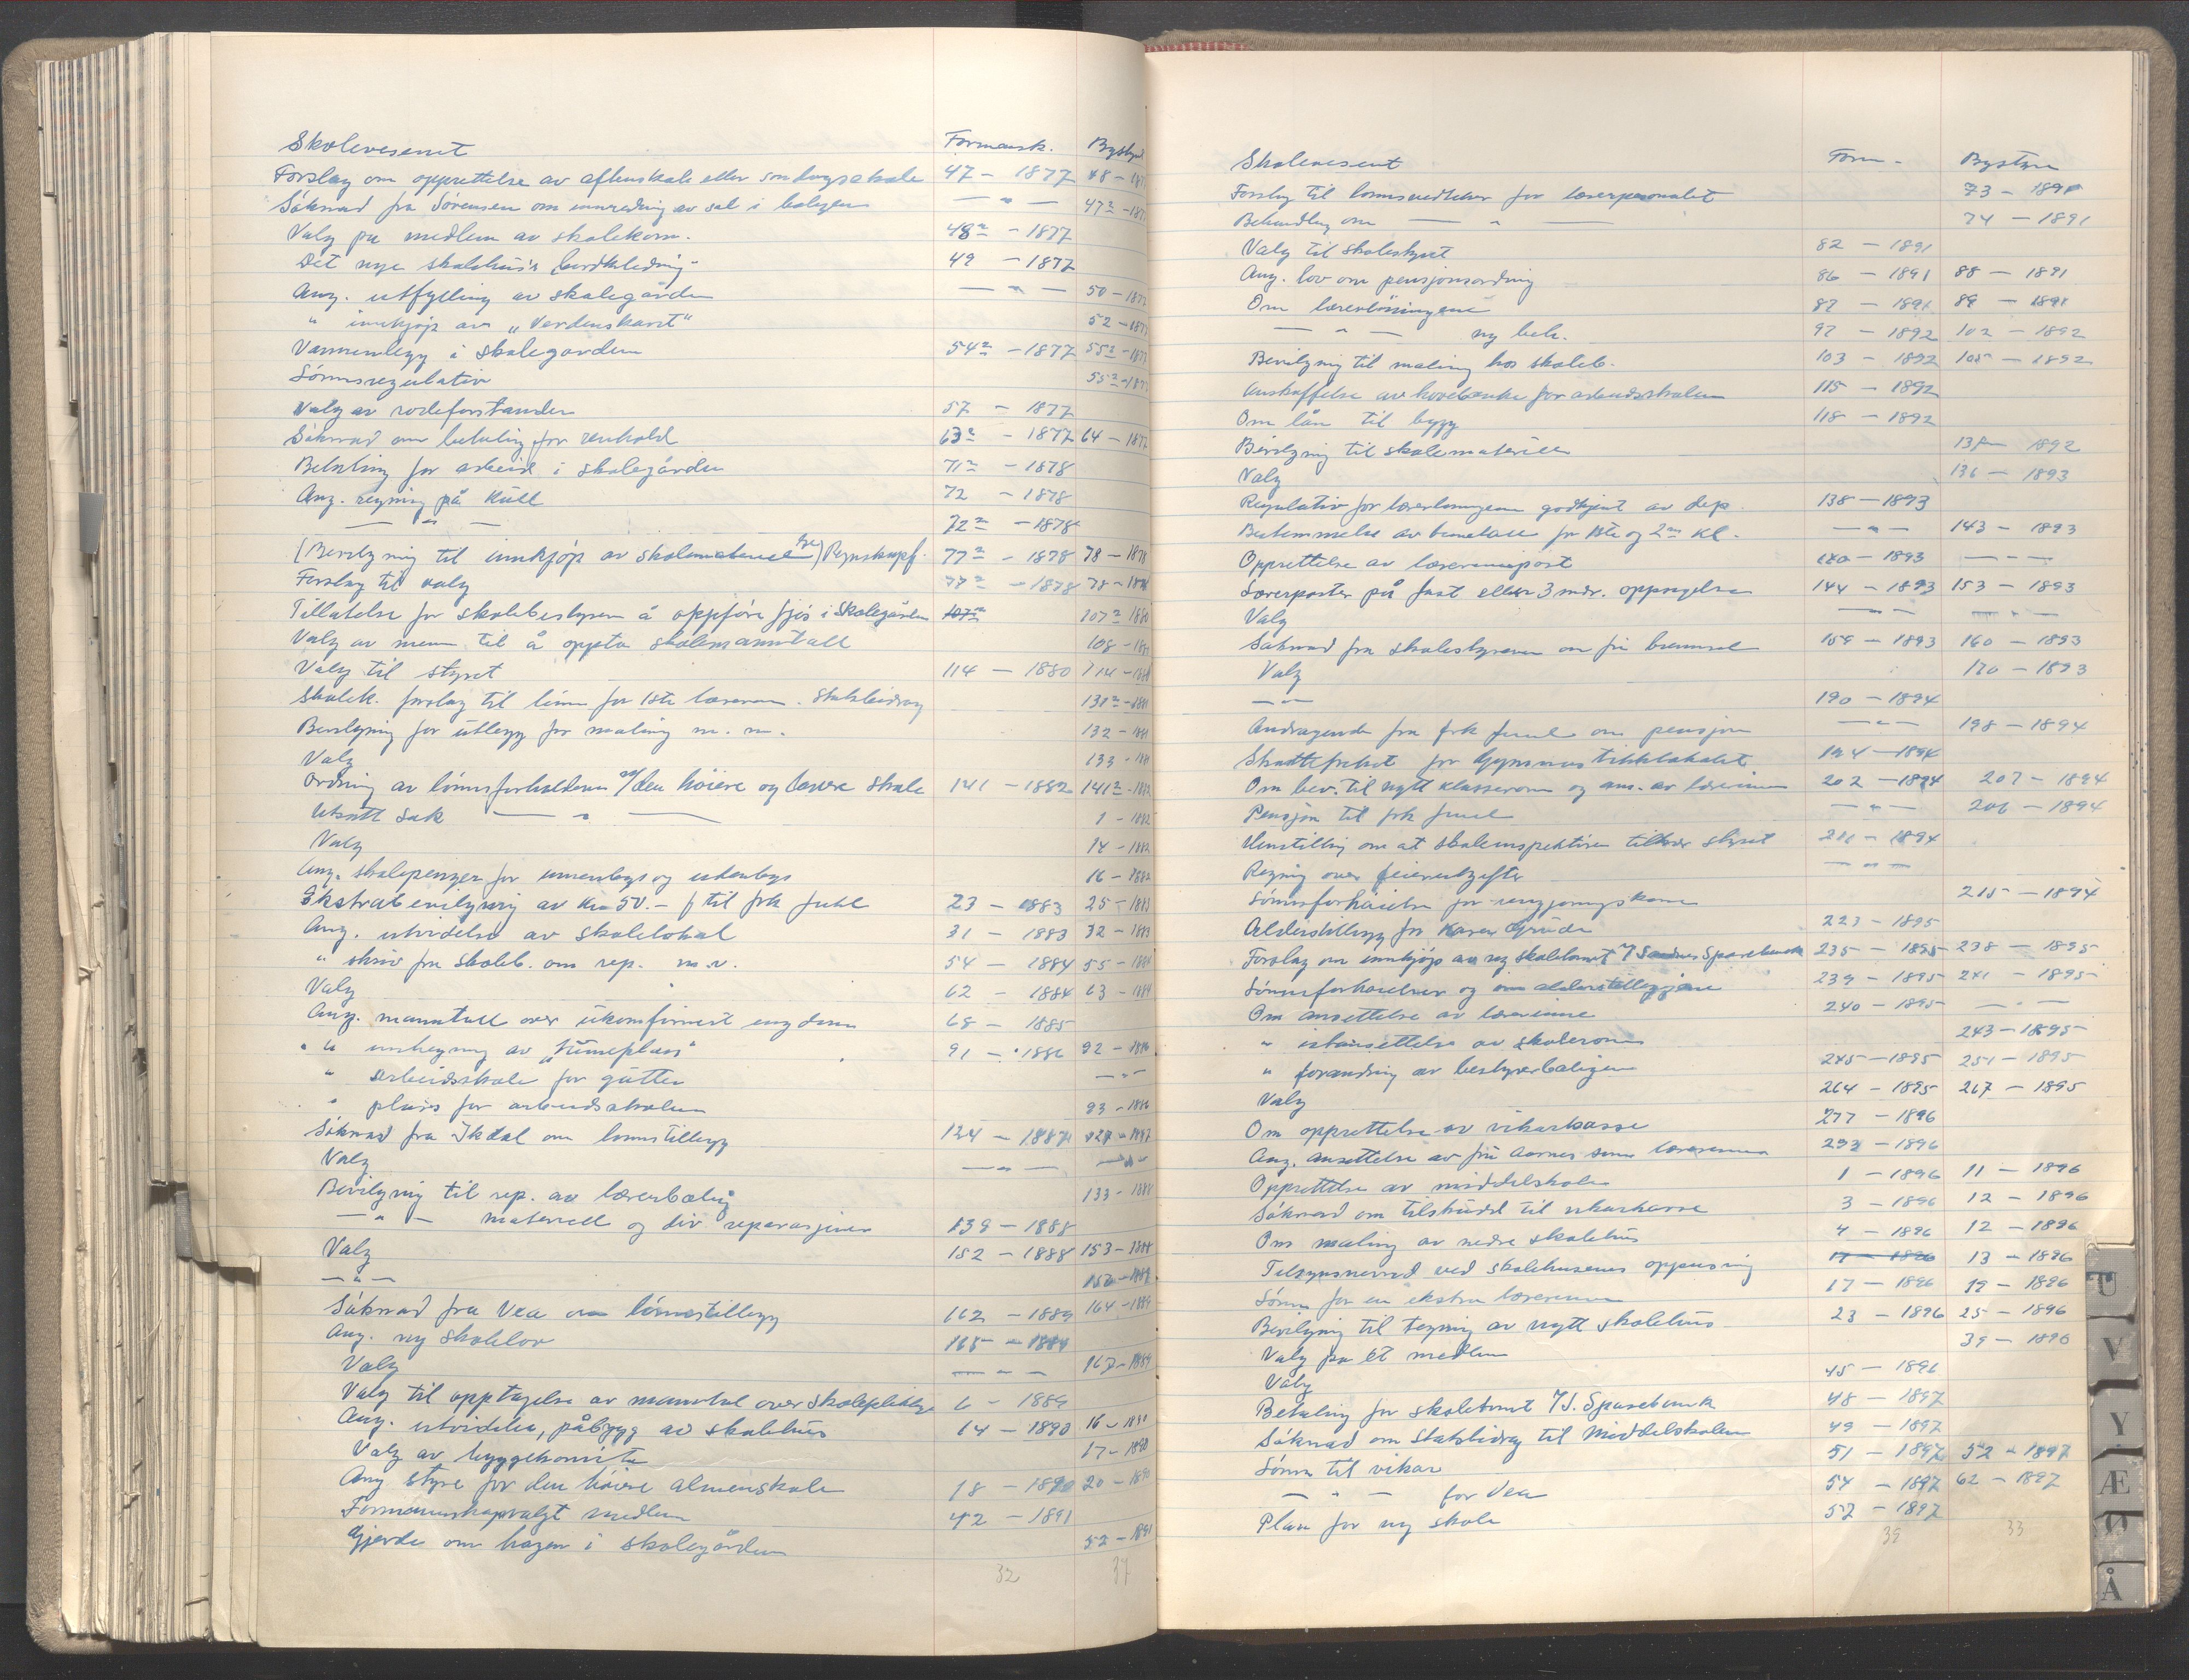 Skolevesenet Formansk. Bystyre
Forslag om opprettelse av aftenskole eller søndagsskole 47 - 1877 48 - 1877
Søknad fra Sørensen om innredning av sal i boligen — " — 47² - 1877
Valg på medlem av skolekom. 48² - 1877
Det nye skolehus's bordkledning 49 - 1877
Ang. utfylling av skolegården — " — 50 - 1877
" innkjøp av "Verdenskart" 52 - 1877
Vanninnlegg i skolegården 54² - 1877 55² - 1877
Lønnsregulativ 55² - 1877
Valg av rodeforstander 57 - 1877
Søknad om betaling for renhold 63² - 1877 64 - 1877
Betaling for arbeid i skolegården 71² - 1878
Ang. regning på kull 72 - 1878
— " — 72² - 1878
(Bevilgning til innkjøp av skolemateriell) Regnskapf. 77² - 1878 78 - 1878
Forslag til valg 77² - 1878 78 - 1878
Tillatelse for skolebestyreren å oppføre fjøs i Skolegården 107² 107² 1880
Valg av menn til å oppta skolemanntall 108 - 1880
Valg til styret 114 - 1880 114 - 1880
Skolek. forslag til lønn for 1ste lærerinne. Statsbidrag 131² - 1881
Bevilgning for utlegg for maling m. m. 132 - 1881
Valg 133 - 1881
Ordning av lønnsforholdene v/den høiere og lavere skole 141 - 1882 141² - 1882
Utsatt sak — " — 1 - 1882
Valg 14 - 1882
Ang. skolepenger for innenbys og utenbys 16 - 1882
Ekstrabevilgning av kr 50.- til frk Juell 23 - 1883 25 - 1883
Ang. utvidelse av skolelokal 31 - 1883 32 - 1883
" skriv fra skoleb. om rep. m.v. 54 - 1884 55 - 1884
Valg 62 - 1884 63 - 1884
Ang. manntall over ukonfirmert ungdom 68 - 1885
" " innhegning av "turneplass" 91 - 1886 92 - 1886
" arbeidsskole for gutter — " —
" plass for arbeidsskolen 93 - 1886
Søknad fra Ikdal om lønnstillegg 124 - 1887 127 - 1887
Valg — " — — " —
Bevilgning til rep. av lærerbolig 133 - 1888
— " — materiell og div reparasjoner 139 - 1888
Valg 152 - 1888 153 - 1888
— " — 156 - 1889
Søknad fra Vea om lønnstillegg 162 - 1889 164 - 1889
Ang. ny skolelov 165 - 1889
Valg — " — 167 - 1889
Valg til opptagelse av manntal over skolepliktige 6 - 1889
Ang. utvidelse, påbygg av skolehus 14 - 1890 16 - 1890
Valg av byggekomite 17 - 1890
Ang styre for den høiere almenskole 18 - 1890 20 - 1890
Formannskapvalgt medlem 42 - 1891
Gjerde om hagen i skolegården 52 - 1891
32 37
Skolevesent Form - Bystyre
Forslag til lønnsvedtekter for lærerpersonalet 73 - 1891
Behandling om — " — 74 - 1891
Valg til skolestyret 82 - 1891
Ang. lov om pensjonsordning 86 - 1891 88 - 1891
Om lærerlønningene 87 - 1891 89 - 1891
— " — ny beh. 97 - 1892 102 - 1892
Bevilgning til maling hos skoleb. 103 - 1892 105 - 1892
Anskaffelse av høvelbenke for arbeidsskolen 115 - 1892
Om lån til bygg 118 - 1892
Bevilgning til skolemateriell 1892
Valg 136 - 1893
Regulativ for lærerlønningene godkjent av dep. 138 - 1893
Bestemmelse av timetall for 1ste og 2nn kl. — " — 143 - 1893
Opprettelse av lærerinnepost 140 - 1893 — " —
Lærerposter på fast eller 3 mdr. oppsigelse 144 - 1893 153 - 1893
Valg — " — — " —
Søknad fra skolestyreren om fri brennsel 159 - 1893 160 - 1893
Valg 170 - 1893
— " — 190 - 1894
Andragende fra frk Juul om pensjon — " — 198 - 1894
Skattefrihet for Gymnastikklokalet 194 - 1894
Om bev. til nytt klasserom og ans. av lærerinne 202 - 1894 207 - 1894
Pensjon til frk Juul — " — 206 - 1894
Henstilling om at skoleinspektøren tiltrær styret 211 - 1894
Regning over feierutgifter — " —
Lønnsforhøielse for rengjøringskone 215 - 1894
Alderstillegg for Karen Grude 223 - 1895
Forslag om innkjøp av ny skoletomt v/ Sandnes Sparebank 235 - 1895 238 - 1895
Lønnsforhøielser og om alderstilleggene 239 - 1895 241 - 1895
Om ansettelse av lærerinne 240 - 1895 — " —
" istandsettelse av skolerom 243 - 1895
" forandring av bestyrerboligen 245 - 1895 251 - 1895
Valg 264 - 1895 267 - 1895
Om opprettelse av vikarkasse 277 - 1896
Ang. ansettelse av fru Aarnes som lærerinne 293 - 1896
Opprettelse av middelskole 1 - 1896 11 - 1896
Søknad om tilskudd til vikarkasse 3 - 1896 12 - 1896
Om maling av nedre skolehus 4 - 1896 12 - 1896
Tilsynsnevnd ved skolehusenes oppussing 17 - 1896 13 - 1896
Lønn for en ekstra lærerinne 17 - 1896 19 - 1896
Bevilgning til tegning av nytt skolehus 23 - 1896 25 - 1896
Valg på et medlem 39 - 1896
Valg 45 - 1896
Betaling for skoletomt v/ S. Sparebank 48 - 1897
Søknad om Statsbidrag til Middelskolen 49 - 1897
Lønn til vikar 51 - 1897 52 - 1897
— " — for Vea 54 - 1897 62 - 1897
Plan for ny skole 57 - 1897
39 33
U
V
Y
Æ
Ø
Å